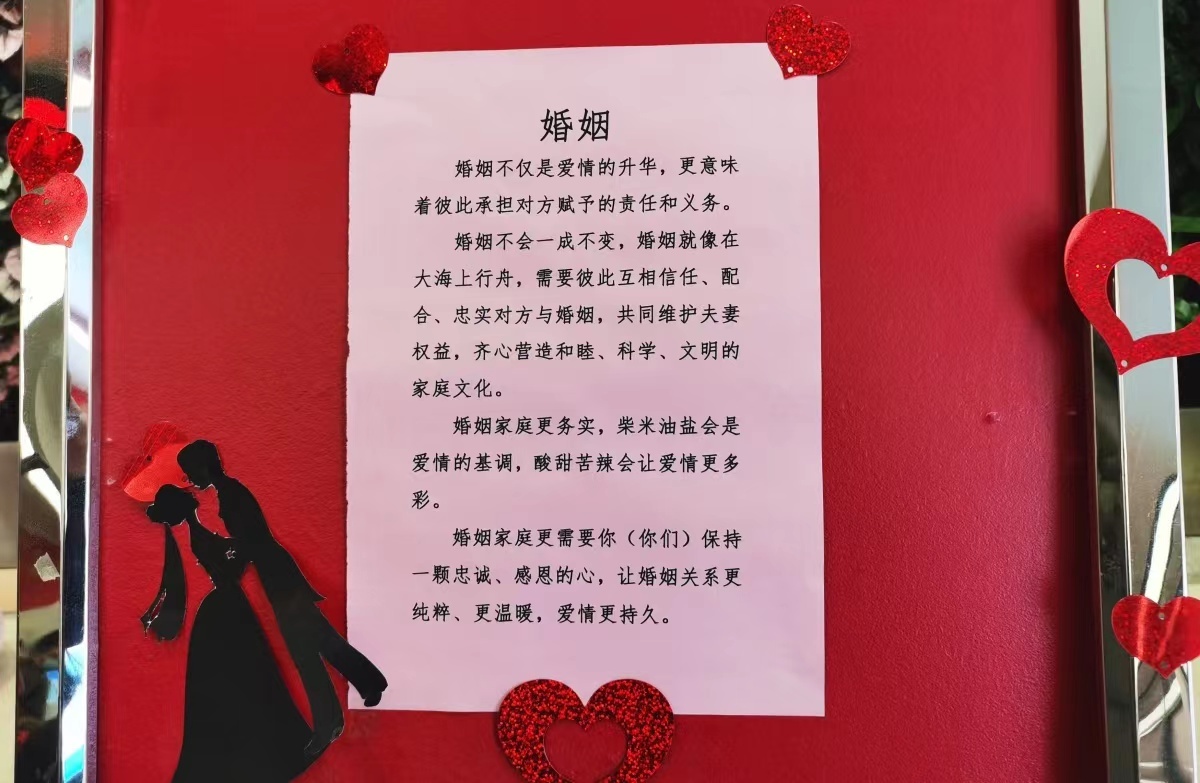 婚姻
婚姻不仅是爱情的升华，更意味
着彼此承担对方赋予的责任和义务。
婚姻不会一成不变，婚姻就像在
大海上行舟，需要彼此互相信任、配
合、忠实对方与婚姻，共同维护夫妻
权益，齐心营造和睦、科学、文明的
家庭文化。
婚姻家庭更务实，柴米油盐会是
爱情的基调，酸甜苦辣会让爱情更多
彩。
婚姻家庭更需要你（你们）保持
一颗忠诚、感恩的心，让婚姻关系更
纯粹、更温暖，爱情更持久。